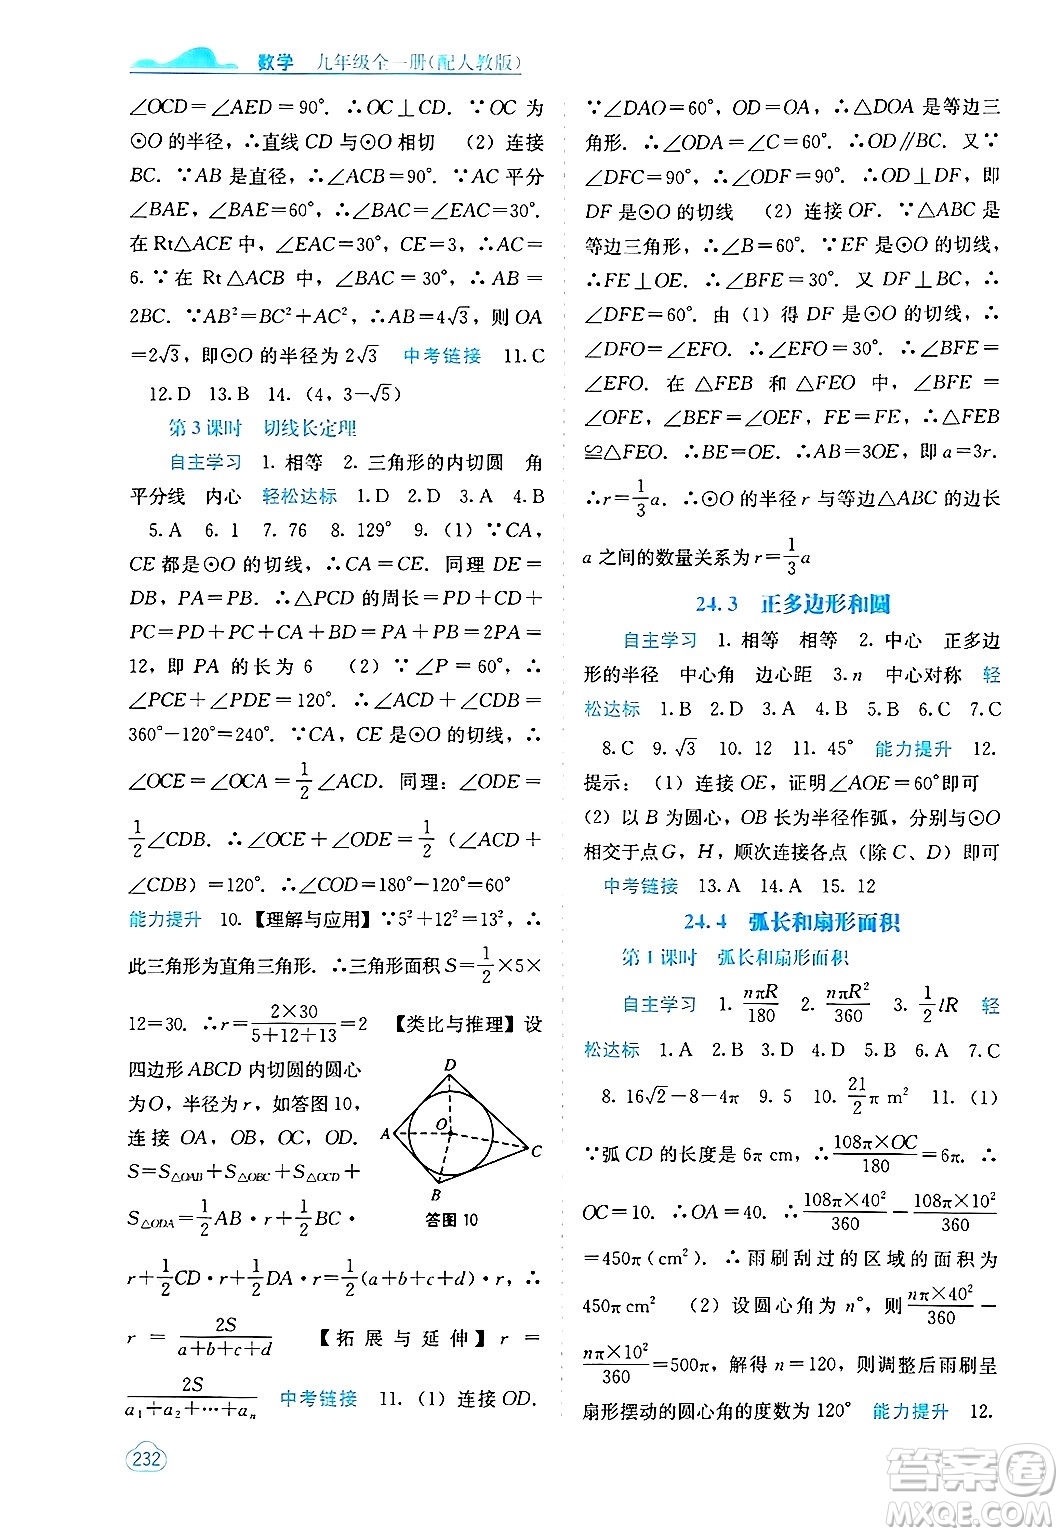 数学 九年级全一册(配人教版)
∠OCD＝∠AED＝90°．∴OC⊥CD．∵OC 为
⊙O的半径，∴直线 CD 与⊙O 相切 （2）连接
BC．∵AB 是直径，∴∠ACB＝90°．∵AC 平分
∠BAE，∠BAE＝60°，∴∠BAC＝∠EAC＝30°．
在 Rt△ACE 中，∠EAC＝30°，CE＝3，∴AC＝
6．∵在 Rt△ACB 中，∠BAC＝30°，∴AB＝
2BC．∵AB²＝BC²＋AC²，∴AB＝4√3，则 OA
＝2√3，即⊙O 的半径为 2√3 中考链接 11. C
12. D 13. B 14.（4，3－√5）
第 3 课时 切线长定理
自主学习 1. 相等 2. 三角形的内切圆 角
平分线 内心 轻松达标 1. D 2. D 3. A 4. B
5. A 6. 1 7. 76 8. 129° 9.（1）∵CA，
CE 都是⊙O 的切线，∴CA＝CE．同理 DE＝
DB，PA＝PB．∴△PCD 的周长＝PD＋CD＋
PC＝PD＋PC＋CA＋BD＝PA＋PB＝2PA＝
12，即 PA 的长为 6 （2）∵∠P＝60°，∴
∠PCE＋∠PDE＝120°．∴∠ACD＋∠CDB＝
360°－120°＝240°．∵CA，CE 是⊙O 的切线，∴
∠OCE＝∠OCA＝1/2∠ACD．同理：∠ODE＝
1/2∠CDB．∴∠OCE＋∠ODE＝1/2（∠ACD＋
∠CDB）＝120°．∴∠COD＝180°－120°＝60°
能力提升 10.【理解与应用】∵5²＋12²＝13²，∴
此三角形为直角三角形．∴三角形面积 S＝1/2×5×
12＝30．∴r＝(2×30)/(5＋12＋13)＝2 【类比与推理】设
四边形 ABCD 内切圆的圆心
为O，半径为 r，如答图 10，
连接 OA，OB，OC，OD．
S＝S△OAB＋S△OBC＋S△OCD＋
S△ODA＝1/2AB·r＋1/2BC·
D
A
O
C
B
答图 10
r＋1/2CD·r＋1/2DA·r＝1/2(a＋b＋c＋d)·r，∴
r＝2S/(a＋b＋c＋d) 【拓展与延伸】r＝
2S/(a₁＋a₂＋…＋aₙ) 中考链接 11.（1）连接 OD．
232
∵∠DAO＝60°，OD＝OA，∴△DOA 是等边三
角形．∴∠ODA＝∠C＝60°．∴OD∥BC．又∵
∠DFC＝90°，∴∠ODF＝90°．∴OD⊥DF，即
DF 是⊙O 的切线 （2）连接 OF．∵△ABC 是
等边三角形，∴∠B＝60°．∵EF 是⊙O 的切线，
∴FE⊥OE．∴∠BFE＝30°．又 DF⊥BC，∴
∠DFE＝60°．由（1）得 DF 是⊙O 的切线，∴
∠DFO＝∠EFO．∴∠DFO＝30°＝∠BFE＝
∠EFO．在 △FEB 和 △FEO 中，∠BFE＝
∠OFE，∠BEF＝∠OEF，FE＝FE，∴△FEB
≌△FEO．∴BE＝OE．∴AB＝3OE，即 a＝3r．
∴r＝1/3a．∴⊙O 的半径 r 与等边△ABC 的边长
a 之间的数量关系为 r＝1/3a
24.3 正多边形和圆
自主学习 1. 相等 相等 2. 中心 正多边
形的半径 中心角 边心距 3. n 中心对称 轻
松达标 1. B 2. D 3. A 4. B 5. B 6. C 7. C
8. C 9. √3 10. 12 11. 45° 能力提升 12.
提示：（1）连接 OE，证明∠AOE＝60°即可
（2）以 B 为圆心，OB 长为半径作弧，分别与⊙O
相交于点G，H，顺次连接各点（除 C、D）即可
中考链接 13. A 14. A 15. 12
24.4 弧长和扇形面积
第 1 课时 弧长和扇形面积
自主学习 1. nπR/180 2. nπR²/360 3. 1/2 lR 轻
松达标 1. A 2. B 3. D 4. D 5. B 6. A 7. C
8. 16√2－8－4π 9. 5 10. 21/2 π m² 11.（1）
∵弧 CD 的长度是 6π cm，∴(108π×OC)/180＝6π．∴
OC＝10．∴OA＝40．∴(108π×40²)/360－(108π×10²)/360
＝450π(cm²)．∴雨刷刮过的区域的面积为
450π cm² （2）设圆心角为 n°，则(nπ×40²)/360－
(nπ×10²)/360＝500π，解得 n＝120，则调整后雨刷呈
扇形摆动的圆心角的度数为 120° 能力提升 12.
答案圈
MXQE.COM